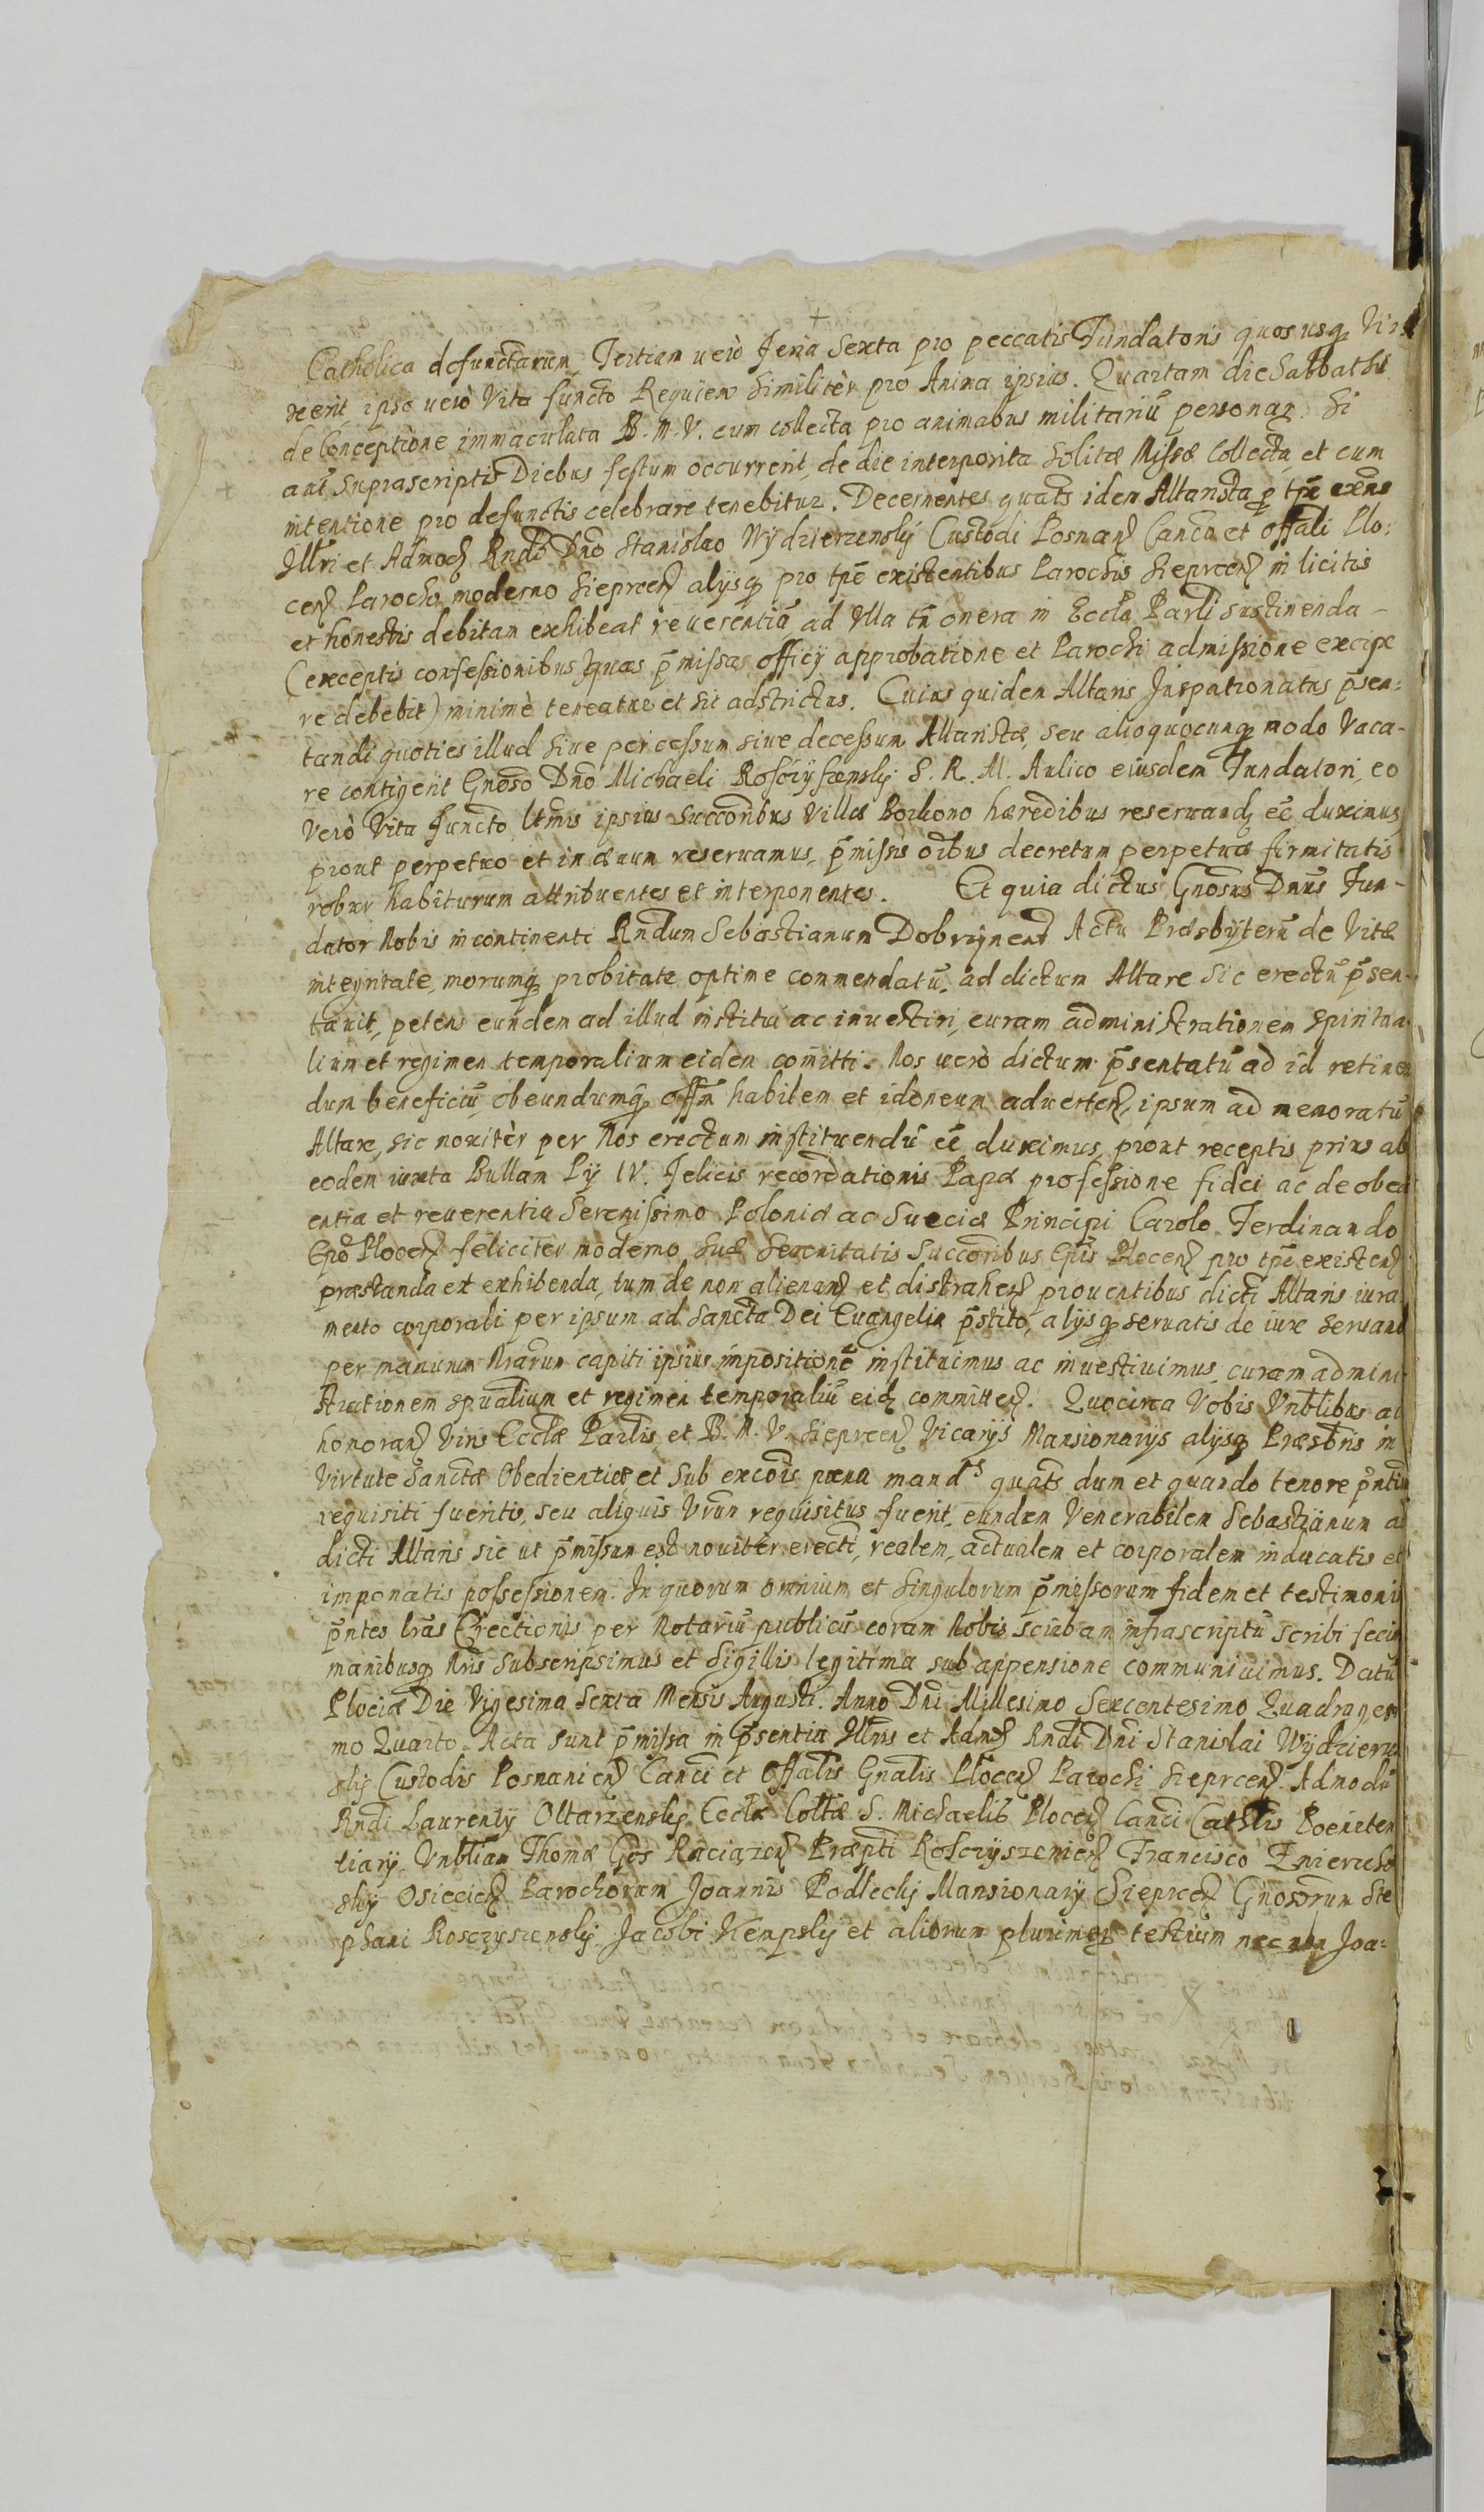 Catholica defunctarum, Tertiam uerò Feria Sexta pro peccatis Fundatoris quousq̨ Vi
xerit ipso uerò Vita functo Requiem similitèr pro Anima ipsius. Quartam die Sabbathi
de Conceptione immaculata B. M. V. cum collecta pro animabus militariū personaꝝ. Si
aut̄ Suprascriptis Diebus festum occurrerit, de die interposita Solitæ Missæ Collecta, et cum
intentione pro defunctis celebrare tenebitur. Decernentes quats̄ idem Altarista p̱ tp̄e exn̄s
Illri et Admoḍ Rndo Dn̄o Stanislao Wydzierzensky Custodi Posnanȝ Canc̄o et Offāli Plo:
cenȝ Parocho moderno Sieprcenȝ alijsq̨ pro tp̄e existentibus Parochis Sieprcenȝ in licitis
et honestis debitam exhibeat reuerentiā ad Vlla tn̄ onera in Eccl̄a Parl̄i sustinenda –
(exceptis confessionibus quas p̄missas officij approbatione et Parochi admissione excipe
re debebit) minimè teneatur et sit adstrictus. Cuius quidem Altaris Juspatronatus p̄sen:
tandi quoties illud siue per cessum siue decessum Altaristæ, seu alio quocunq̨ modo Vaca-
re contigerit Gnōso Dn̄o Michaeli Rosczyszensky S. R. M. Aulico eiusdem Fundatori, eo
Verò Vita Functo Ltm̄is ipsius Succoribus Villæ Borkowo hæredibus reseruandȝ eē duximus
prout perpetuo et in æuum reseruamus, p̄missis oībus decretum perpetuæ firmitatis
robur habiturum attribuentes et interponentes. Et quia dictus Gnōsus Dn̄us Fun-
dator Nobis incontinenti Rndum Sebastianum Dobrzynenȝ Actu Præsbyterū de Vitæ
integritate, morumq̨ probitate optime commendatū, ad dictum Altare sic erectū p̄sen-
tauit, petens eundem ad illud institui ac inuestiri, curam administrationem spiritua
lium et regimen temporalium eidem com̄itti. Nos uerò dictum p̄sentatū ad id retinen
dum beneficiū, obeundumq̨ offm̄ habilem et idoneum aduertenȝ, ipsum ad memoratū
Altare, sic nouitèr per Nos erectum instituendū eē duximus, prout receptis prius ab
eodem iuxta Bullam Pij IV. Felicis recordationis Papæ professione fidei ac de obedi
entia et reuerentia Serenissimo Poloniæ ac Sueciæ Principi Carolo Ferdinando
Epō Plocenȝ feliciter moderno, Suæ Serenitatis Succoribus Ep̄is Plocenȝ pro tp̄e existenȝ
præstanda et exhibenda, tum de non alienanȝ et distrahenȝ prouentibus dicti Altaris iura
mento corporali per ipsum ad Sancta Dei Euangelia p̄stito, alijsq̨ seruatis de iure seruanȝ
per manuum Nrarum capiti ipsius impositionē instituimus ac inuestiuimus, curam admini
strationem spūalium et regimen temporaliū eidȝ committenȝ. Quocirca Vobis Vnblibus ac
honoranȝ Viris Eccl̄æ Parlis et B. M. V. Sieprcenȝ Vicarijs Mansionarijs alijsq̨ Præsbris in
Virtute Sanctæ Obedientiæ et sub excōis pæna mandˢ quats̄ dum et quando tenore pn̄tiū
requisiti fueritis, seu aliquis Vrum requisitus fuerit, eundem Venerabilem Sebastianum ad
dicti Altaris sic ut p̄missum est nouitèr erecti, realem, actualem et corporalem inducatis et
imponatis possessionem. In quorum omnium et singulorum p̄missorum fidem et testimoniū
pn̄tes lrās Erectionis per Notariū publicū coram Nobis scribam infrascriptū scribi fecim
manibusq̨ Nris subscripsimus et sigillis legitima sub appensione communiuimus. Datū
Plociæ Die Vigesima Sexta Mensis Augusti. Anno Dn̄i Millesimo Sexcentesimo Quadragesi
mo Quarto. Acta sunt p̄missa in p̄sentia Illris et Admḍ Rndi Dn̄i Stanislai Wydzierzen
sky Custodis Posnanienȝ Canci et Offalis Gnalis Plocenȝ Parochi Sieprcenȝ. Admodū
Rndi Laurentij Oltarzensky Eccl̄æ Coll̄æ S. Michaelis Plocenȝ Canci Cathlis Poeniten
tiarij. Vnblium Thomæ Raciązenȝ Præpti Rosczyszenienȝ Francisco
sky Osiecienȝ Parochorum Joannis Podlecky Mansionarij Sieprcenȝ Gnosorum Ste
phani Rosczyszensky Jacobi Kempsky et aliorum plurimoꝝ testium nec non Joa: